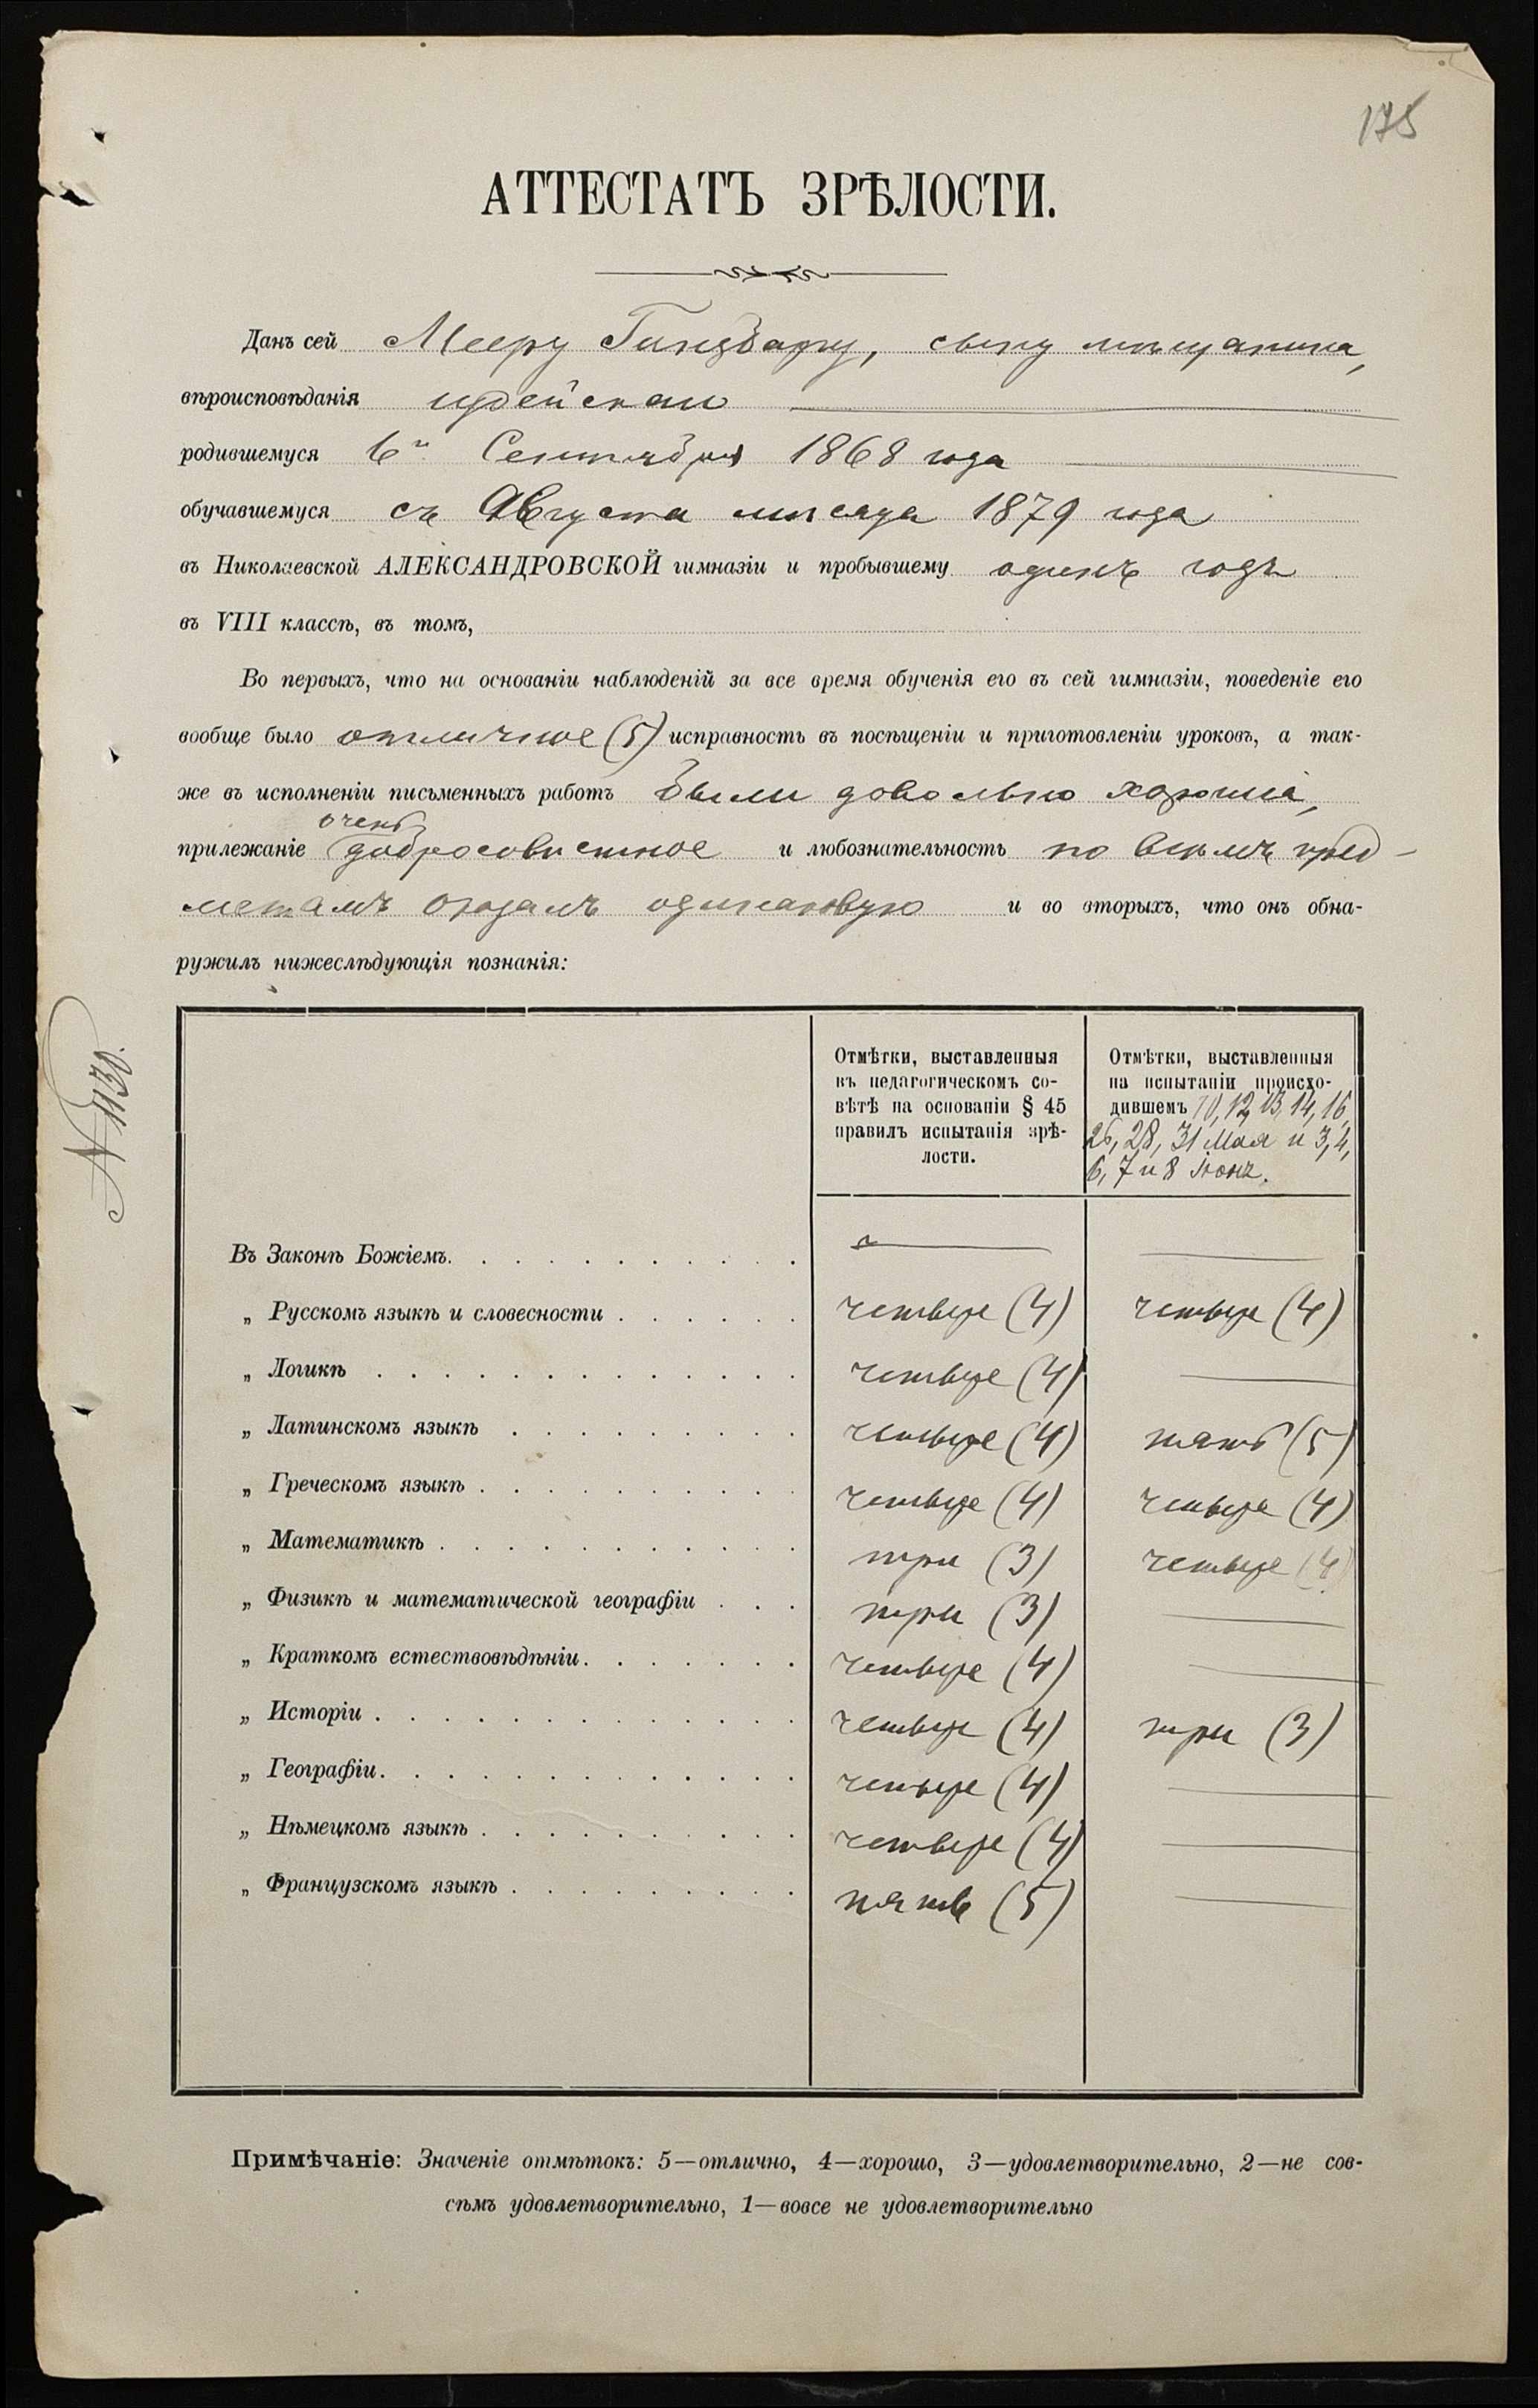 175
АТТЕСТАТЪ ЗРѢЛОСТИ.
Данъ сей Мееру Гинзбергу, сыну мѣщанина,
вѣроисповѣданія іудейскаго
родившемуся 6го Сентября 1868 года
обучавшемуся съ Августа мѣсяца 1879 года
въ Николаевской АЛЕКСАНДРОВСКОЙ гимназіи и пробывшему одинъ годъ
въ VIII классѣ, въ томъ,
Во первыхъ, что на основаніи наблюденій за все время обученія его въ сей гимназіи, поведеніе его
вообще было отличное (5) исправность въ посѣщеніи и приготовленіи уроковъ, а так-
же въ исполненіи письменныхъ работъ были довольно хороши,
очень
прилежаніе добросовѣстное и любознательность по всѣмъ пред-
метамъ одинаковую и во вторыхъ, что онъ обна-
ружилъ нижеслѣдующія познанія:
№ 1130.
Отмѣтки, выставленныя
въ педагогическомъ со-
вѣтѣ на основаніи § 45
правилъ испытанія зрѣ-
лости.
Отмѣтки, выставленныя
на испытаніи происхо-
дившемъ 10, 12, 13, 14, 16,
26, 28, 31 Мая и 3, 4,
6, 7 и 8 Іюня.
Въ Законѣ Божіемъ.
„ Русскомъ языкѣ и словесности четыре (4) четыре (4)
„ Логикѣ четыре (4)
„ Латинскомъ языкѣ четыре (4) пять (5)
„ Греческомъ языкѣ четыре (4) четыре (4)
„ Математикѣ три (3) четыре (4)
„ Физикѣ и математической географіи три (3)
„ Краткомъ естествовѣдѣніи четыре (4)
„ Исторіи четыре (4) три (3)
„ Географіи четыре (4)
„ Нѣмецкомъ языкѣ четыре (4)
„ Французскомъ языкѣ пять (5)
Примѣчаніе: Значеніе отмѣтокъ: 5—отлично, 4—хорошо, 3—удовлетворительно, 2—не сов-
сѣмъ удовлетворительно, 1—вовсе не удовлетворительно